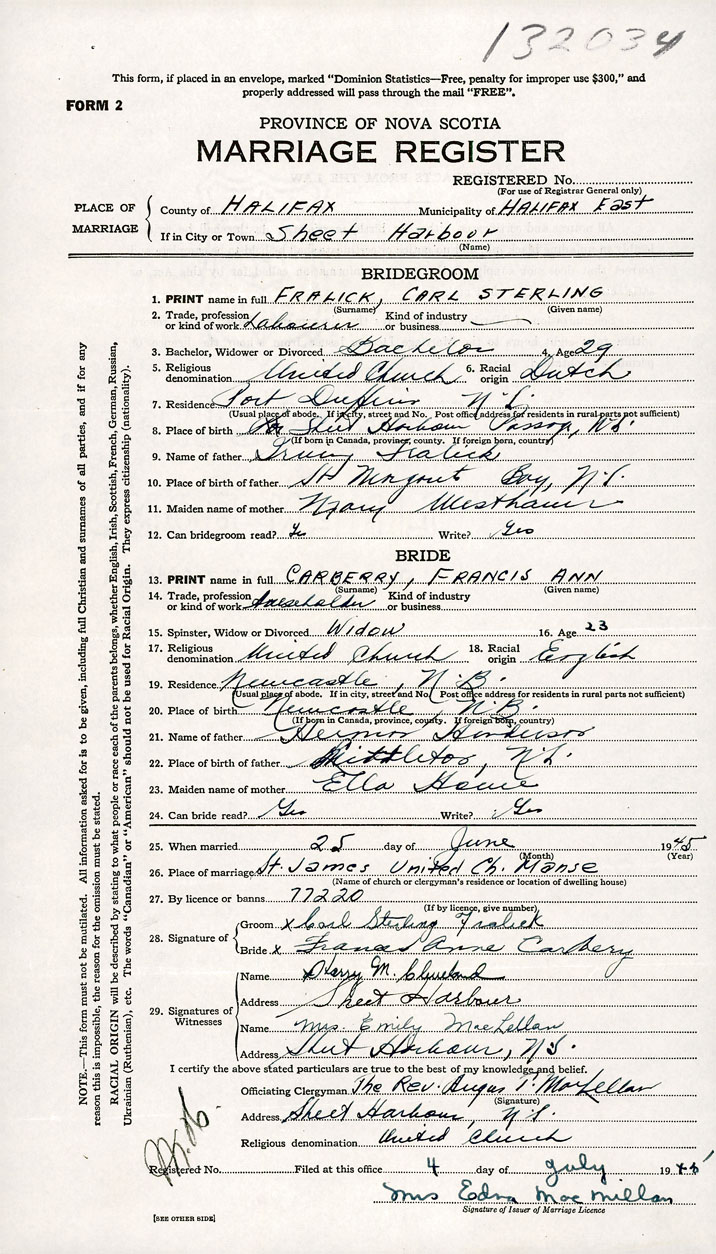 132034
This form, if placed in an envelope, marked "Dominion Statistics—Free, penalty for improper use $300," and
properly addressed will pass through the mail "FREE".
FORM 2
PROVINCE OF NOVA SCOTIA
MARRIAGE REGISTER
REGISTERED No.
(For use of Registrar General only)
PLACE OF MARRIAGE
County of HALIFAX Municipality of HALIFAX East
If in City or Town Sheet Harbour
(Name)
BRIDEGROOM
1. PRINT name in full FRALICK, CARL STERLING
(Surname) (Given name)
2. Trade, profession or kind of work Labourer Kind of industry or business —
3. Bachelor, Widower or Divorced Bachelor 4. Age 29
5. Religious denomination United Church 6. Racial origin Dutch
7. Residence Port Dufferin N.S.
(Usual place of abode. If in city, street and No. Post office address for residents in rural parts not sufficient)
8. Place of birth Sheet Harbour Passage, N.S.
(If born in Canada, province, county. If foreign born, country)
9. Name of father Fralick
10. Place of birth of father St Margaret Bay, N.S.
11. Maiden name of mother Mary Westhaver
12. Can bridegroom read? Yes Write? Yes
BRIDE
13. PRINT name in full CARBERRY, FRANCIS ANN
(Surname) (Given name)
14. Trade, profession or kind of work Householder Kind of industry or business
15. Spinster, Widow or Divorced Widow 16. Age 23
17. Religious denomination United Church 18. Racial origin English
19. Residence Newcastle, N.B.
(Usual place of abode. If in city, street and No. Post office address for residents in rural parts not sufficient)
20. Place of birth Newcastle N.B.
(If born in Canada, province, county. If foreign born, country)
21. Name of father Henderson
22. Place of birth of father Middleton, N.S.
23. Maiden name of mother Ella
24. Can bride read? Yes Write? Yes
25. When married 25 day of June 1945
(Month) (Year)
26. Place of marriage St. James United Ch. Manse
(Name of church or clergyman's residence or location of dwelling house)
27. By licence or banns 77220
(If by licence, give number)
28. Signature of
Groom x Carl Sterling Fralick
Bride x Frances Anne Carbery
29. Signatures of Witnesses
Name Harry M. Cleveland
Address Sheet Harbour
Name Mrs. Emily MacLellan
Address Sheet Harbour, N.S.
I certify the above stated particulars are true to the best of my knowledge and belief.
Officiating Clergyman The Rev. Angus T. MacLellan
(Signature)
Address Sheet Harbour, N.S.
Religious denomination United Church
Registered No. Filed at this office 4 day of July 1945
Mrs Edna MacMillan
Signature of Issuer of Marriage Licence
[SEE OTHER SIDE]
NOTE.—This form must not be mutilated. All information asked for is to be given, including full Christian and surnames of all parties, and if for any
reason this is impossible, the reason for the omission must be stated.
RACIAL ORIGIN will be described by stating to what people or race each of the parents belongs, whether English, Irish, Scottish, French, German, Russian,
Ukrainian (Ruthenian), etc. The words "Canadian" or "American" should not be used for Racial Origin. They express citizenship (nationality).